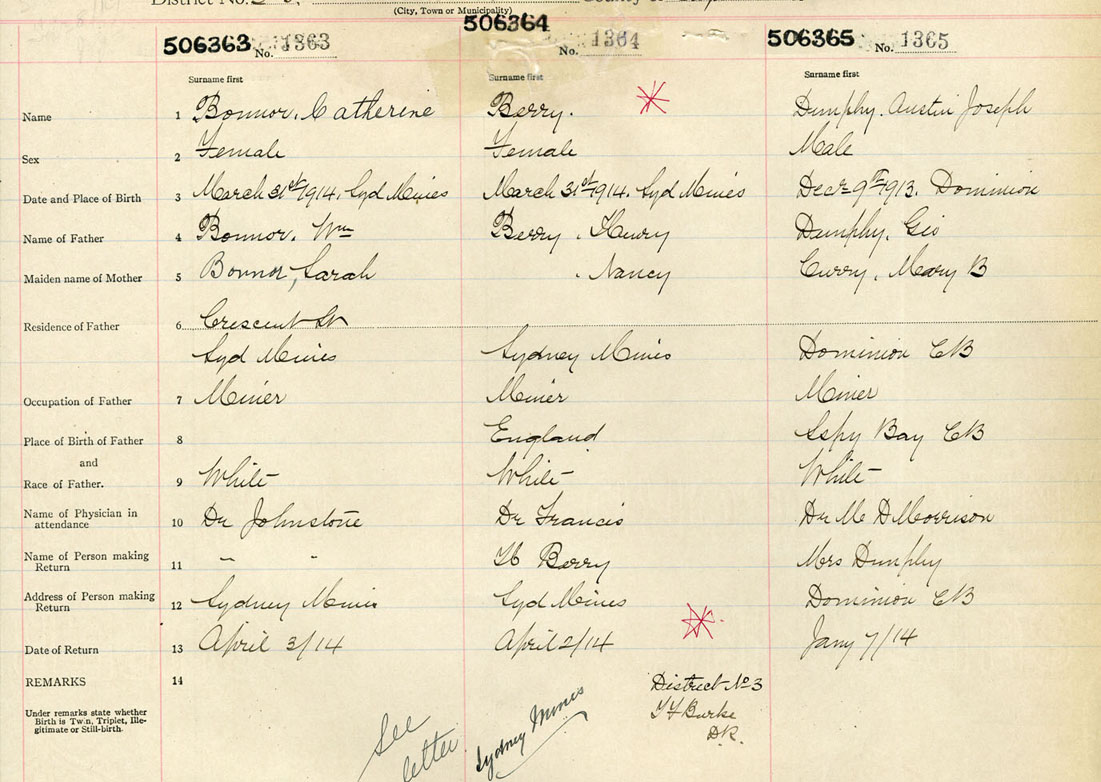 District No.
(City, Town or Municipality)
506363 No. 1363 506364 No. 1364 506365 No. 1365
Surname first Surname first Surname first
Name 1 Bonnor, Catherine Berry. Dumphy. Austin Joseph
Sex 2 Female Female Male
Date and Place of Birth 3 March 31st 1914. Syd Mines March 31st 1914. Syd Mines Decr 9th 1913. Dominion
Name of Father 4 Bonnor. Wm Berry, Henry Dumphy. Geo
Maiden name of Mother 5 Bonnor, Sarah , Nancy Curry, Mary B
Residence of Father 6 Crescent St
Syd Mines Sydney Mines Dominion CB
Occupation of Father 7 Miner Miner Miner
Place of Birth of Father 8 England Aspy Bay CB
and
Race of Father. 9 White White White
Name of Physician in
attendance 10 Dr Johnstone Dr Francis Dr M D Morrison
Name of Person making
Return 11 " " H Berry Mrs Dumphy
Address of Person making
Return 12 Sydney Mines Syd Mines Dominion CB
Date of Return 13 April 3/14 April 2/14 Jany 7/14
REMARKS 14
Under remarks state whether
Birth is Twin, Triplet, Ille-
gitimate or Still-birth.
District No 3
Burke
D.R.
See
letter
Sydney Mines